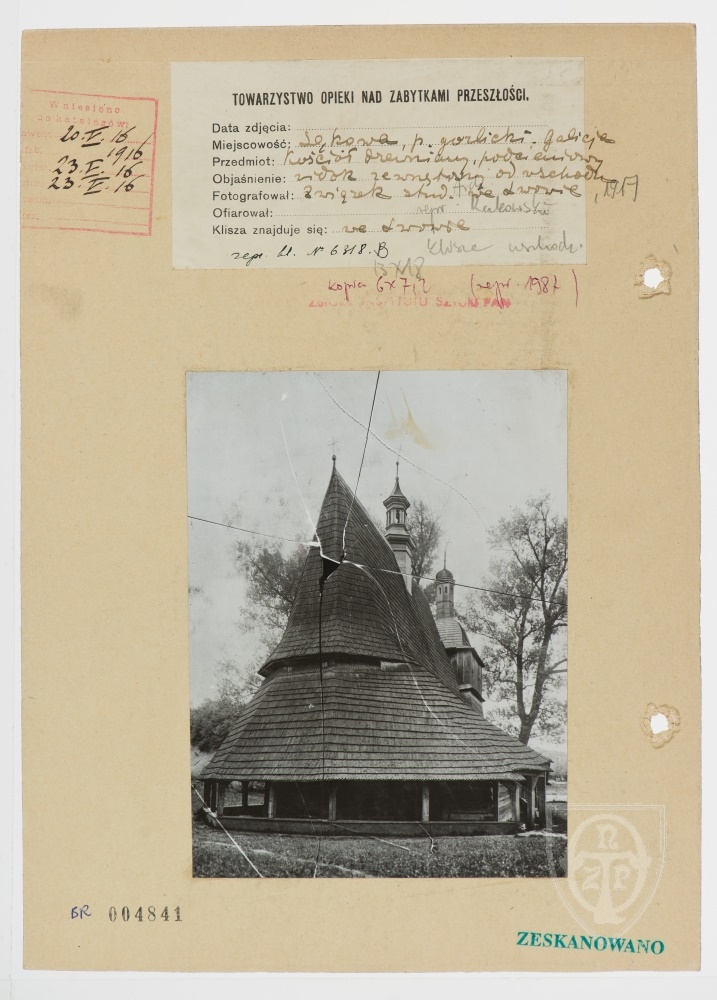 Wniesiono
do katalogów
20. V. 16
23. V. 1916
23. V. 16
TOWARZYSTWO OPIEKI NAD ZABYTKAMI PRZESZŁOŚCI.
Data zdjęcia:
Miejscowość: Sękowa, p. gorlicki. Galicja
Przedmiot: Kościół drewniany, podcieniowy
Objaśnienie: widok zewnętrzny od wschodu
Fotografował: Związek stud. Ar. we Lwowie, 1917
Ofiarował: repr.
Klisza znajduje się: we Lwowie
repr. kl. № 6318. B Klisze
13x18
kopia 6x7,2 (repr. 1987)
ZBIORY INSTYTUTU SZTUKI PAN
BR 004841
TONZP
ZESKANOWANO